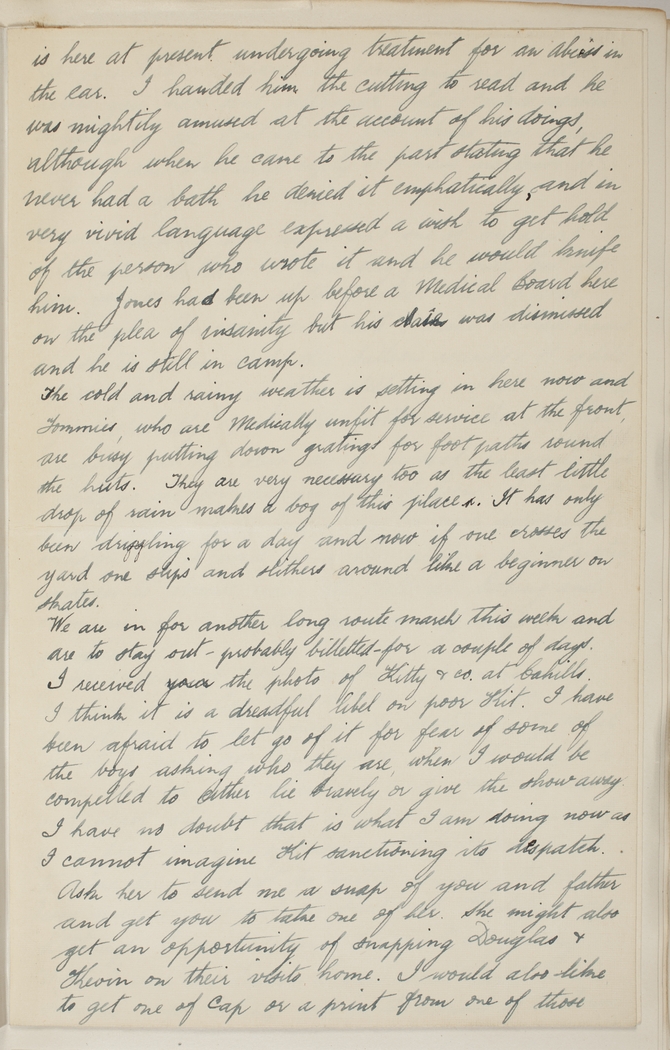 is here at present undergoing treatment for an abscess in
the ear. I handed him the cutting to read and he
was mightily amused at the account of his doings,
although when he came to the part stating that he
never had a bath he denied it emphatically, and in
very vivid language expressed a wish to get hold
of the person who wrote it and he would knife
him. Jones had been up before a Medical Board here
on the plea of insanity but his claim was dismissed
and he is still in camp.
The cold and rainy weather is setting in here now and
Tommies, who are Medically unfit for service at the front,
are busy putting down gratings for foot paths round
the huts. They are very necessary too as the least little
drop of rain makes a bog of this place. It has only
been drizzling for a day and now if one crosses the
yard one slips and slithers around like a beginner on
skates.
We are in for another long route march this week and
are to stay out - probably billetted - for a couple of days.
I received your the photo of Kitty & co. at Cahills.
I think it is a dreadful libel on poor Kit. I have
been afraid to let go of it for fear of some of
the boys asking who they are, when I would be
compelled to either lie bravely or give the show away.
I have no doubt that is what I am doing now as
I cannot imagine Kit sanctioning its despatch.
Ask her to send me a snap of you and father
and get you to take one of her. She might also
get an opportunity of snapping Douglas &
Kevin on their visits home. I would also like
to get one of Cap or a print from one of those